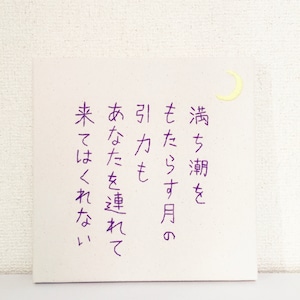 満ち潮を
もたらす月の
引力も
あなたを連れて
来てはくれない